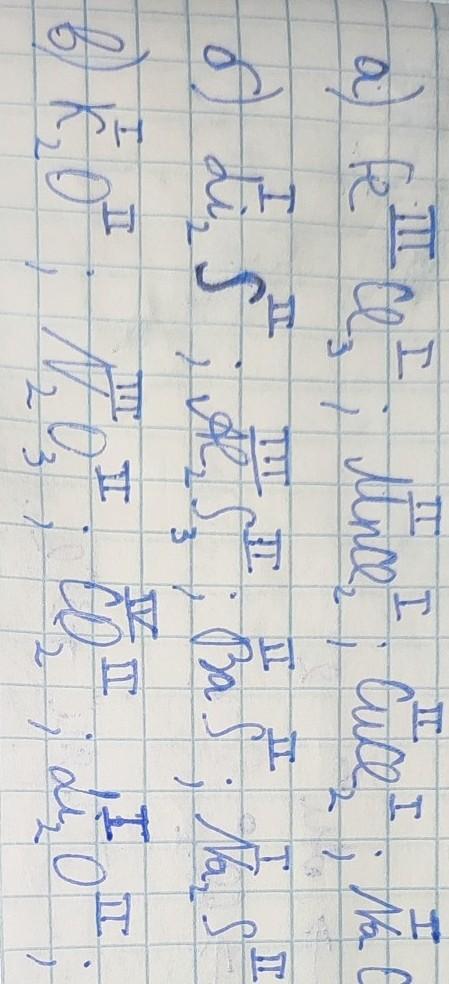 а) FeᴵᴵᴵCl₃ᴵ; MnᴵᴵCl₂ᴵ; CuᴵᴵCl₂ᴵ; NaᴵC
б) Li₂ᴵSᴵᴵ; Al₂ᴵᴵᴵS₃ᴵᴵ; BaᴵᴵSᴵᴵ; Na₂ᴵSᴵᴵ
в) K₂ᴵOᴵᴵ; N₂ᴵᴵᴵO₃ᴵᴵ; CᴵⱽO₂ᴵᴵ; Li₂ᴵOᴵᴵ;